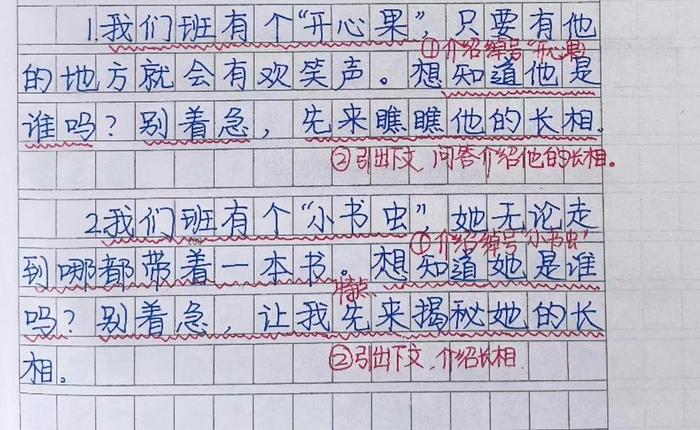 1.我们班有个“开心果”，只要有他
①介绍绰号“开心果”
的地方就会有欢笑声。想知道他是
谁吗？别着急，先来瞧瞧他的长相。
②引出下文，问答介绍他的长相。
2.我们班有个“小书虫”，她无论走
①介绍绰号“小书虫”
到哪都带着一本书。想知道她是谁
特点
吗？别着急，让我先来揭秘她的长
相。
②引出下文，介绍长相